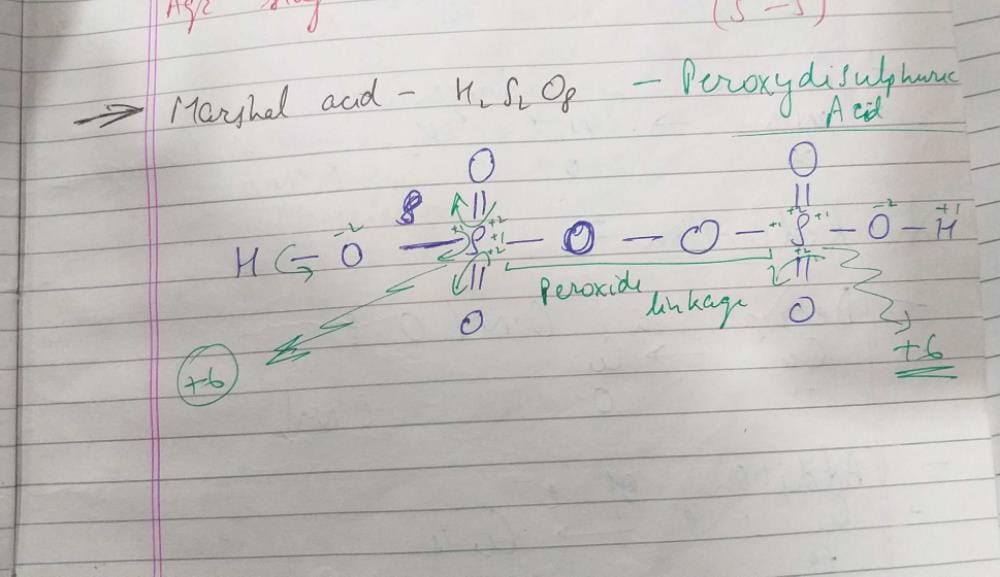 (S-S)
→ Marshal acid - H₂S₂O₈ - Peroxydisulphuric
Acid
O O
|| ||
H - O⁻² - S - O - O - S - O⁻² - H⁺¹
+1 +2 +1 +2 +1 +2 +1 +2
|| ||
O O
Peroxide linkage
+6 +6